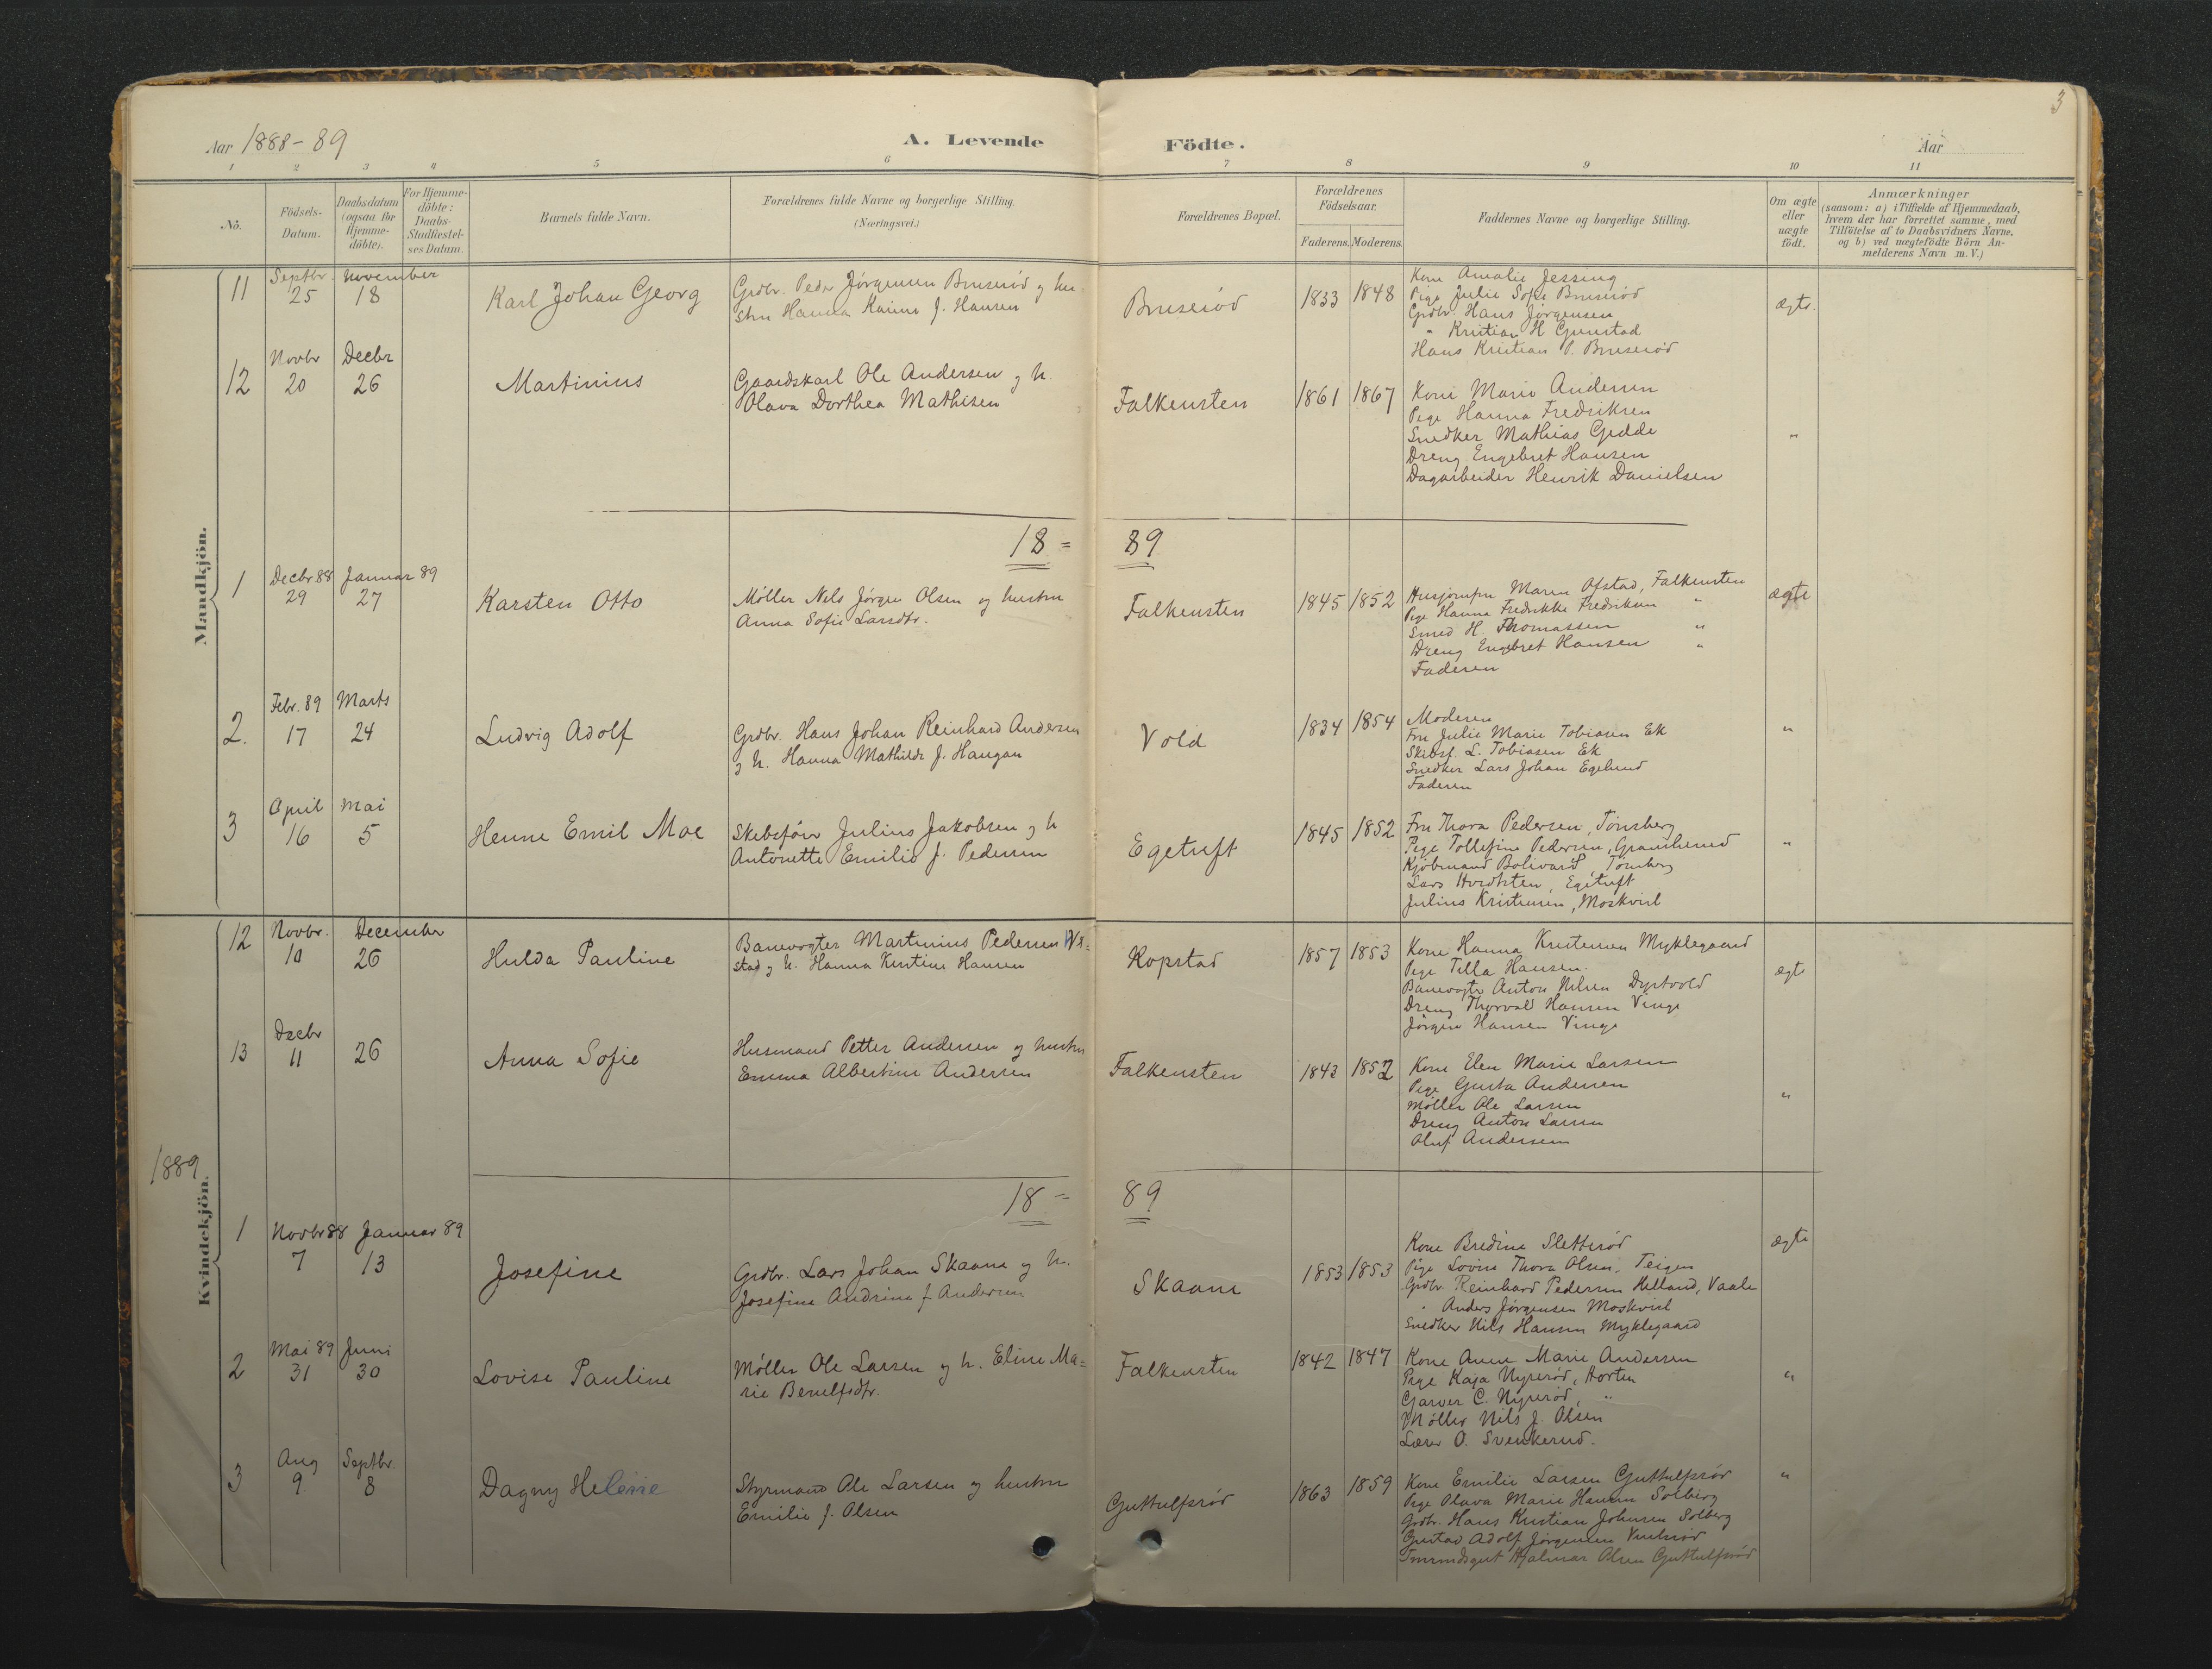 3
Aar 1888-89
A. Levende Födte.
Aar
1 2 3 4 5 6 7 8 9 10 11
No.
Födsels-Datum.
Daabsdatum (ogsaa for Hjemme-döbte).
For Hjemme-döbte: Daabs-Stadfæstel-ses Datum.
Barnets fulde Navn.
Forældrenes fulde Navne og borgerlige Stilling.
(Næringsvei.)
Forældrenes Bopæl.
Forældrenes Födselsaar.
Faderens. Moderens.
Faddernes Navne og borgerlige Stilling.
Om ægte eller uægte födt.
Anmærkninger
(saasom: a) i Tilfælde af Hjemmedaab,
hvem der har forrettet samme, med
Tilföielse af to Daabsvidners Navne,
og b) ved uægtefödte Börn An-
melderens Navn m. V.)
Mandkjön.
11 Septbr. 25 November 18
Karl Johan Georg
Grdbr. Peder Jörgensen Bruseröd og hu-
stru Hanna Karine J. Hansen
Bruseröd
1833 1848
Kone Amalie Jessing
Pige Julie Sofie Bruseröd
Grdbr. Hans Jörgensen
" Kristian H Gunstad
Hans Kristian P. Bruseröd
ægte.
12 Novbr 20 Decbr 26
Martinius
Gaardskarl Ole Andersen og h.
Olava Dorthea Mathisen
Falkensten
1861 1867
Kone Marie Andersen
Pige Hanna Fredriksen
Snedker Mathias Gedde
Dreng Engebret Hansen
Dagarbeider Henrik Danielsen
"
18 = 89
1 Decbr 88 29 Januar 89 27
Karsten Otto
Möller Nils Jörgen Olsen og hustru
Anna Sofie Larsdtr.
Falkensten
1845 1852
Husjomfru Maren Ofstad, Falkensten
Pige Hanna Fredrikke Fredriksen "
Smed H. Thomassen "
Dreng Engebret Hansen "
Faderen
ægte
2. Febr. 89 17 Marts 24
Ludvig Adolf
Grdbr. Hans Johan Reinhard Andersen
og h. Hanna Mathilde J. Haugan
Vold
1834 1854
Moderen
Fru Julie Marie Tobiasen Ek
Skibsf. L. Tobiasen Ek
Snedker Lars Johan Egelund
Faderen
"
3 April 16 Mai 5
Henne Emil Moe
Skibsförer Julius Jakobsen og h
Antonette Emilie f. Pedersen
Egetuft
1845 1852
Fru Thora Pedersen, Tönsberg
Pige Tollefine Pedersen,
Kjöbmand Bolivard, Tönsberg
Lars Hvidsten, Egetuft
Julius Kristensen, Moskvil
"
Kvindekjön.
12 Novbr. 10 December 26
Hulda Pauline
Banevogter Martinius Pedersen
stad og h. Hanna Kirstine Hansen
Kopstad
1857 1853
Kone Hanna Kristensen Myklegaard
Pige Tilla Hansen.
Banevogter Anton Nilsen Dyrtvold
Dreng Thorval Hansen Vinge
Jörgen Hansen Vinge
ægte
13 Decbr 11 26
Anna Sofie
Husmand Petter Andersen og hustru
Emma Albertine Andersen
Falkensten
1843 1852
Kone Elen Marie Larsen
Pige Gusta Andersen
Möller Ole Larsen
Dreng Anton Larsen
Oluf Andersen
"
1889
18 = 89
1 Novbr 88 7 Januar 89 13
Josefine
Grdbr. Lars Johan Skaane og h.
Josefine Andrine f Andersen
Skaane
1853 1853
Kone Bredine Sletteröd
Pige Lovise Thora Olsen, Teigen
Grdbr. Reinhard Pedersen Helland, Vaale
" Anders Jörgensen Moskvil
Snedker Nils Hansen Myklegaard
ægte
2 Mai 89 31 Juni 30
Lovise Pauline
Möller Ole Larsen og h. Eline Ma-
rie Berulfsdtr.
Falkensten
1842 1847
Kone Anne Marie Andersen
Pige Kaja Nyseröd, Horten
Garver C. Nyseröd, "
Möller Nils J. Olsen
Lærer O. Svenkerud.
"
3 Aug 9 Septbr. 8
Dagny Helene
Styrmand Ole Larsen og hustru
Emilie J. Olsen
Guttulfsröd
1863 1859
Kone Emilie Larsen Guttulfsröd
Pige Olava Marie Hansen Solberg
Grdbr. Hans Kristian Johnsen Solberg
Gustav Adolf Jörgensen
Tömmdsgut Hjalmar Olsen Guttulfsröd
"